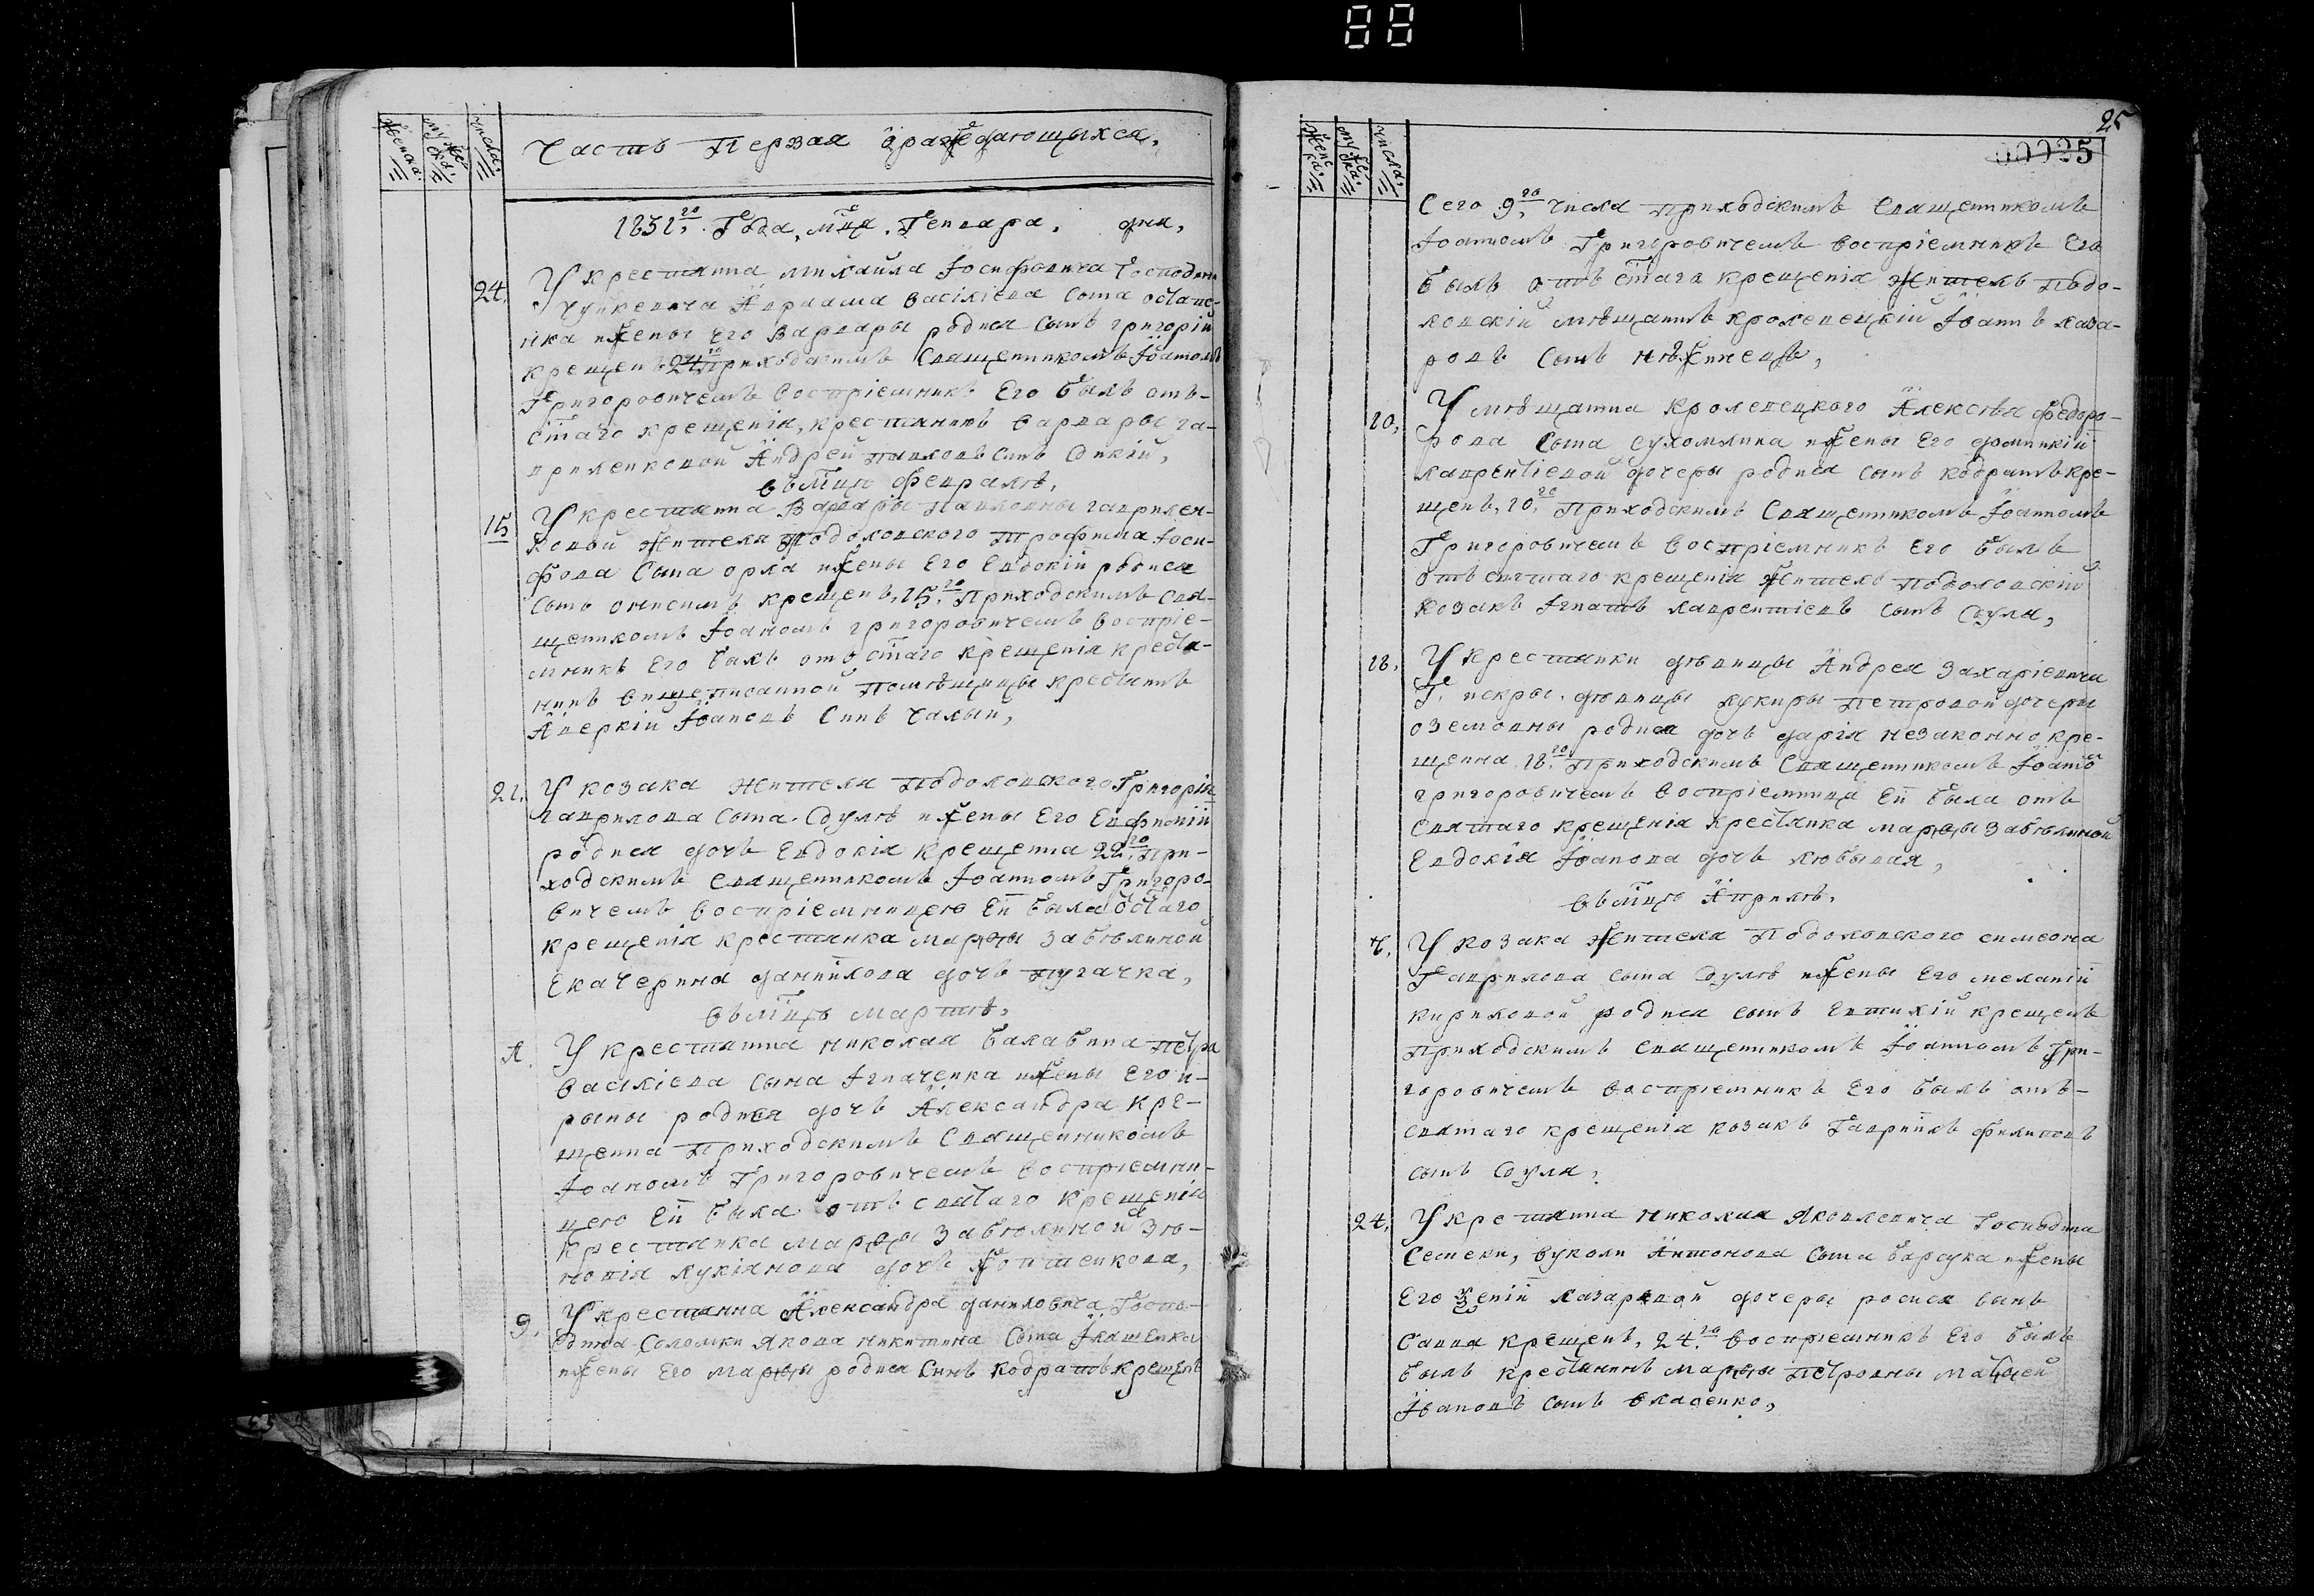 88
женска.
мужеска.
числа.
Часть Первая ӧраждающыхся.
1831го Года, мца Генвара. дня,
24. У крестянина михаила Іосифовича Господина
Авраама васілієва сына
нка ижены Его варвары родися сынъ григорій
крещенъ 24го приходскимъ Священникомъ Іоаномъ
Григоровичемъ воспріемникъ Его былъ отъ-
стаго крещенія, крестянинъ варвары га-
вриленковой Андрей павловъ Синъ
въ мцю февралѣ,
15 У крестянина Варвары Павловны гаврилен-
ковой жителя Подоловского Трофима Іоси-
фова Сына орла ижены Его Евдокіи родися
сынъ онисимъ крещенъ, 15го Приходскимъ Свя-
щенникомъ Іоаномъ григоровичемъ воспріе-
мникъ Его былъ отъ стаго крещенія кресtя-
нинъ вищеписанной Помѣщицы кресtянинъ
Аверкій Іоановъ Синъ Чалый,
21. У козака жителя Подоловского Григорія
гаврилова сына Сдулѣ ижены Его Евфиміи
родися дочь Евдокія крещенна 22го При-
ходскимъ Священникомъ Іоанномъ Григоро-
вичемъ воспріемницею Ей была ӧстаго
крещенія крестянка марфы забѣлиной
Екатерина даниилова дочь пугачка,
въ мцѣ мартѣ,
А. У крестянина николая балабина петра
васілієва сына Ігначенка ижены Его и-
рыны родися дочь Александра кре-
щенна Приходскимъ Священникомъ
Іоаномъ Григоровичемъ воспріемни-
цею Ей была отъ святаго крещенія
крестянка марфы забѣлиной Зѣ-
новія лукіянова дочь
9, У крестянина Александра даниловича Госпо-
дина Соломки Якова никитина Сына Івашенка
ижены Его марфы родися Синъ кодратъ крещенъ
25
00025
женска.
мужеска.
числа.
Сего 9го числа Приходскимъ Священникомъ
Іоанномъ Григоровичемъ воспріемникъ Его
былъ отъ стаго крещенія житель Подо-
ловскій мѣщанинъ кролевецкій Іоанъ лаза-
ровъ сынъ нѣжинецъ,
10, У мѣщанина кролевецкого Алексѣя федоро-
рова Сына сухомлина ижены Его домникіи
лаврентіевой дочеры родися сынъ кодратъ кре-
щенъ, 10го Приходскимъ Священникомъ Іоанномъ
Григоровичемъ воспріемникъ Его былъ
отъ святаго крещенія житель Подоловскій
козакъ Ігнатъ лаврентіевъ сынъ Сдула,
18, У крестянки дѣвицы Андрея захаріевича
Г. искры. дѣвицы лукиры петровой дочеры
оземовны родися дочь дарія незаконно кре-
щенна 18го Приходскимъ Священникомъ Іоано
григоровичемъ воспріемница Ей была отъ
святаго крещенія кресtянка марфы забѣлиной
Евдокія Іоанова дочь любывая,
въ мцю Априлѣ.
4, У козака жителя Подоловского симеона
Гаврилова сына Сдулѣ ижены Его меланіи
кириловой родися сынъ Евтихій крещенъ
Приходскимъ Священникомъ Іоанномъ Гри-
горовичемъ воспріемникъ Его былъ отъ-
святаго крещенія козакъ Гавриїлъ филиповъ
сынъ Сдула,
24, У крестянина николая Яковлевича Господина
Семеки, вуколи Антонова Сына барсука ижены
Его ѯеніи лазаревой дочеры родися сынъ
Савва крещенъ, 24го воспріемникъ Его былъ
былъ кресtянинъ марфы петровны матфей
Івановъ сынъ власенко,